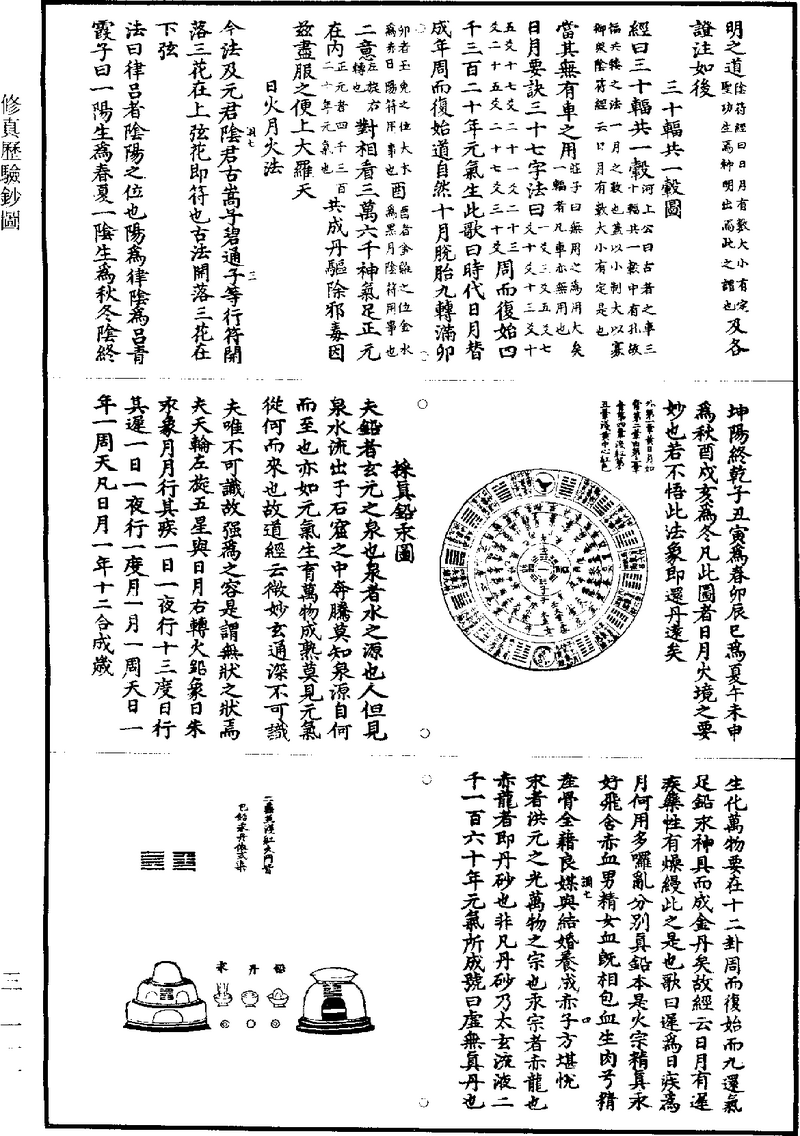 修真歷驗鈔圖
明之道陰符經曰日月有數大小有定聖功生焉神明出焉此之謂也及各
證注如後
三十輻共一轂圖
經曰三十輻共一轂河上公曰古者之車三十輻共一轂中有孔故
輻共轃之法一月之數也蓋以小制大以寡御衆陰符經云日月有數大小有定是也
當其無有車之用莊子曰無用之為用大矣一輻若凡車亦無用也
日月要訣三十七字法曰一爻三爻五爻七
爻十三爻十五爻十七爻二十一爻二十三爻二十五爻二十七爻三十爻周而復始四
千三百二十年元氣生此歌曰時代日月替
成年周而復始道自然十月脫胎九轉滿卯
卯者玉兔之位大木為表日陽符用事也酉酉者金雞之位金水為黑月陰符用事也
二意左旋右轉也對相看三萬六千神氣足正元
在內正元者四千三百二十年元氣也共成丹驅除邪毒因
茲盡服之便上大羅天
日火月火法
今法及元君陰君古嵩子碧通子等行符開
落三花在上弦花即符也古法開落三花在
下弦
法曰律呂者陰陽之位也陽為律陰為呂青
霞子曰一陽生為春夏一陰生為秋冬陰終
坤陽終乾子丑寅為春卯辰巳為夏午未申
為秋酉戌亥為冬凡此圖者日月火境之要
妙也若不悟此法象即還丹遠矣
採真鉛汞圖
夫鉛者玄元之泉也泉者水之源也人但見
泉水流出于石窟之中奔騰莫知泉源自何
而至也亦如元氣生育萬物成熟莫見元氣
從何而來也故道經云微妙玄通深不可識
夫唯不可識故强為之容是謂無狀之狀焉
夫天輪左旋五星與日月右轉火鉛象日朱
汞象月月行其疾一日一夜行十三度日行
其遲一日一夜行一度月一月一周天日一
年一周天凡日月一年十二合成歲
生化萬物要在十二卦周而復始而九還氣
足鉛汞神具而成金丹矣故經云日月有遲
疾藥性有燥緩此之是也歌曰遲為日疾為
月何用多囉亂分別真鉛本是火宗精真汞
好飛舍赤血男精女血既相包血生肉兮精
產骨全藉良媒與結婚養成赤子方堪悅
汞者洪元之光萬物之宗也汞宗者赤龍也
赤龍者即丹砂也非凡丹砂乃太玄流液二
千一百六十年元氣所成號曰虛無真丹也
鉛
丹
汞
三一